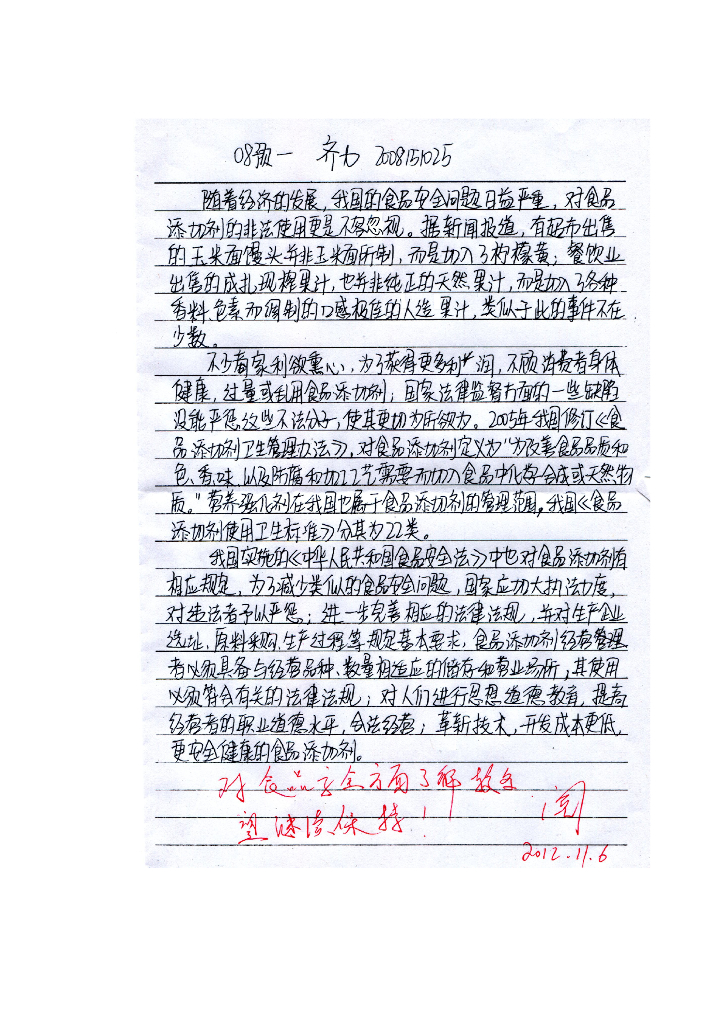 08预一 齐力 2008151025
随着经济的发展，我国的食品安全问题日益严重，对食品
添加剂的非法使用更是不容忽视。据新闻报道，有超市出售
的玉米面馒头并非玉米面所制，而是加入了柠檬黄；餐饮业
出售的成扎现榨果汁，也并非纯正的天然果汁，而是加入了各种
香料、色素而调制的口感极佳的人造果汁，类似于此的事件不在
少数。
不少商家利欲熏心，为了获得更多利润，不顾消费者身体
健康，过量或乱用食品添加剂，国家法律监督方面的一些缺陷
没能严惩这些不法分子，使其更加为所欲为。2005年我国修订《食
品添加剂卫生管理办法》，对食品添加剂定义为"为改善食品品质和
色、香、味，以及防腐和加工工艺需要而加入食品中化学合成或天然物
质。"营养强化剂在我国也属于食品添加剂的管理范围，我国《食品
添加剂使用卫生标准》分其为22类。
我国实施的《中华人民共和国食品安全法》中也对食品添加剂有
相应规定，为了减少类似的食品安全问题，国家应加大执法力度，
对违法者予以严惩；进一步完善相应的法律法规，并对生产企业
选址、原料采购、生产过程等规定基本要求，食品添加剂经营管理
者必须具备与经营品种、数量相适应的储存和营业场所，其使用
必须符合有关的法律法规；对人们进行思想道德教育，提高
经营者的职业道德水平，合法经营；革新技术，开发成本更低，
更安全健康的食品添加剂。
对食品安全方面了解较多
望继续保持！ 阅
2012.11.6